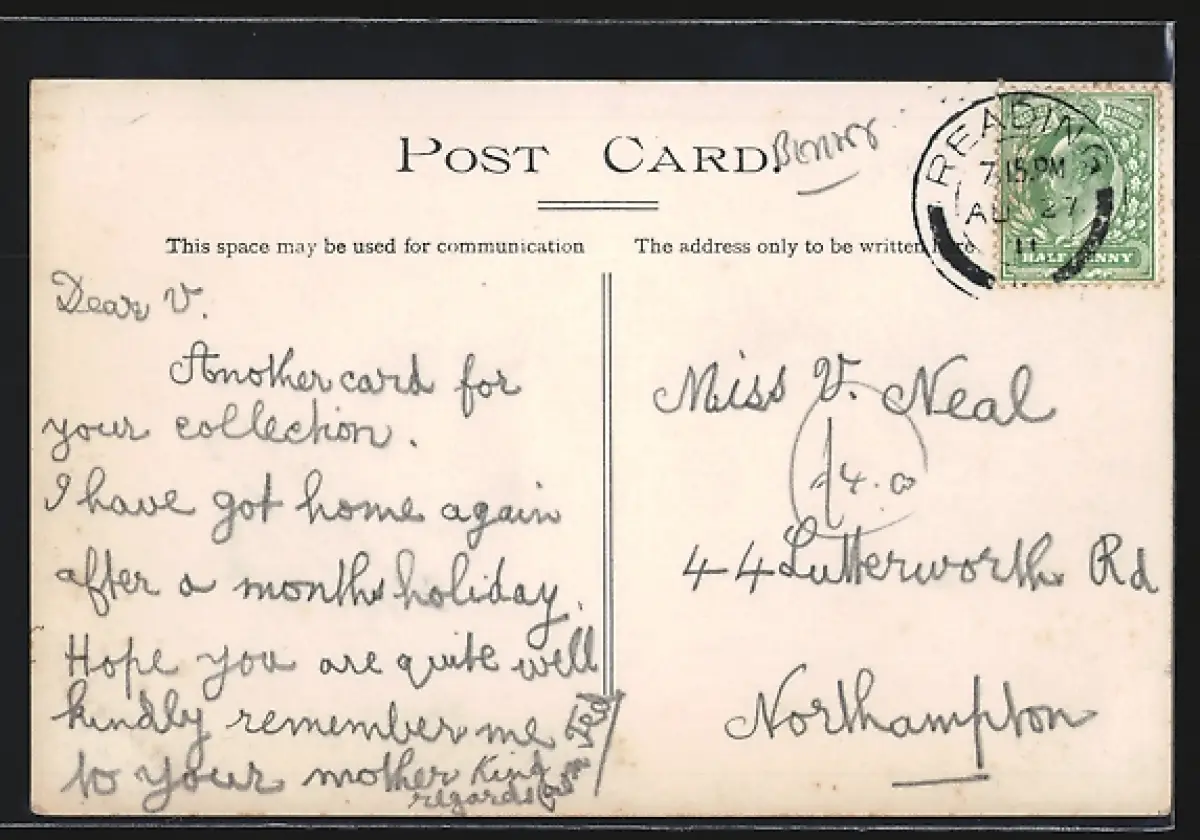 POST CARD.
This space may be used for communication
The address only to be written here
READING
7.15 PM
AU 27
11
HALFPENNY
Dear V.
Another card for
your collection.
I have got home again
after a months holiday.
Hope you are quite well
kindly remember me
to your mother Kind
regards from Ted
Miss V. Neal
4.0
44 Lutterworth Rd
Northampton